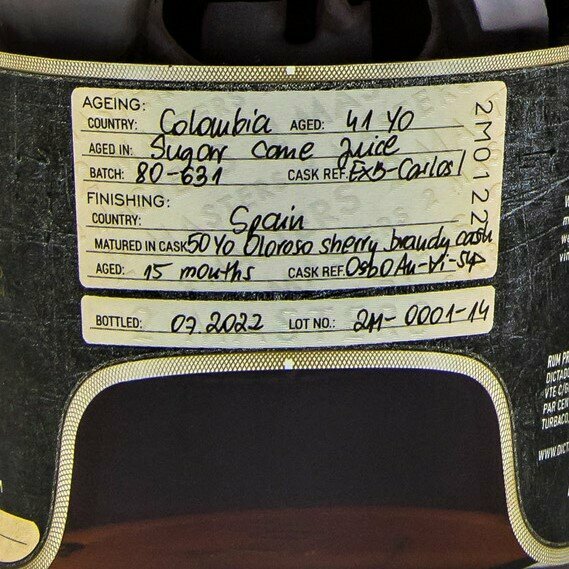 AGEING:
COUNTRY: Colombia AGED: 41 YO
AGED IN: Sugar cane juice
BATCH: 80-631 CASK REF. ExB-Carlos1
FINISHING:
COUNTRY: Spain
MATURED IN CASK 50 Yo Oloroso sherry brandy cask
AGED: 15 months CASK REF.
BOTTLED: 07.2022 LOT NO.: 2M-0001-14
2M0122
RUM
DICTAD
VTE C/
PAR CEN
TURBACO
WWW.DICT